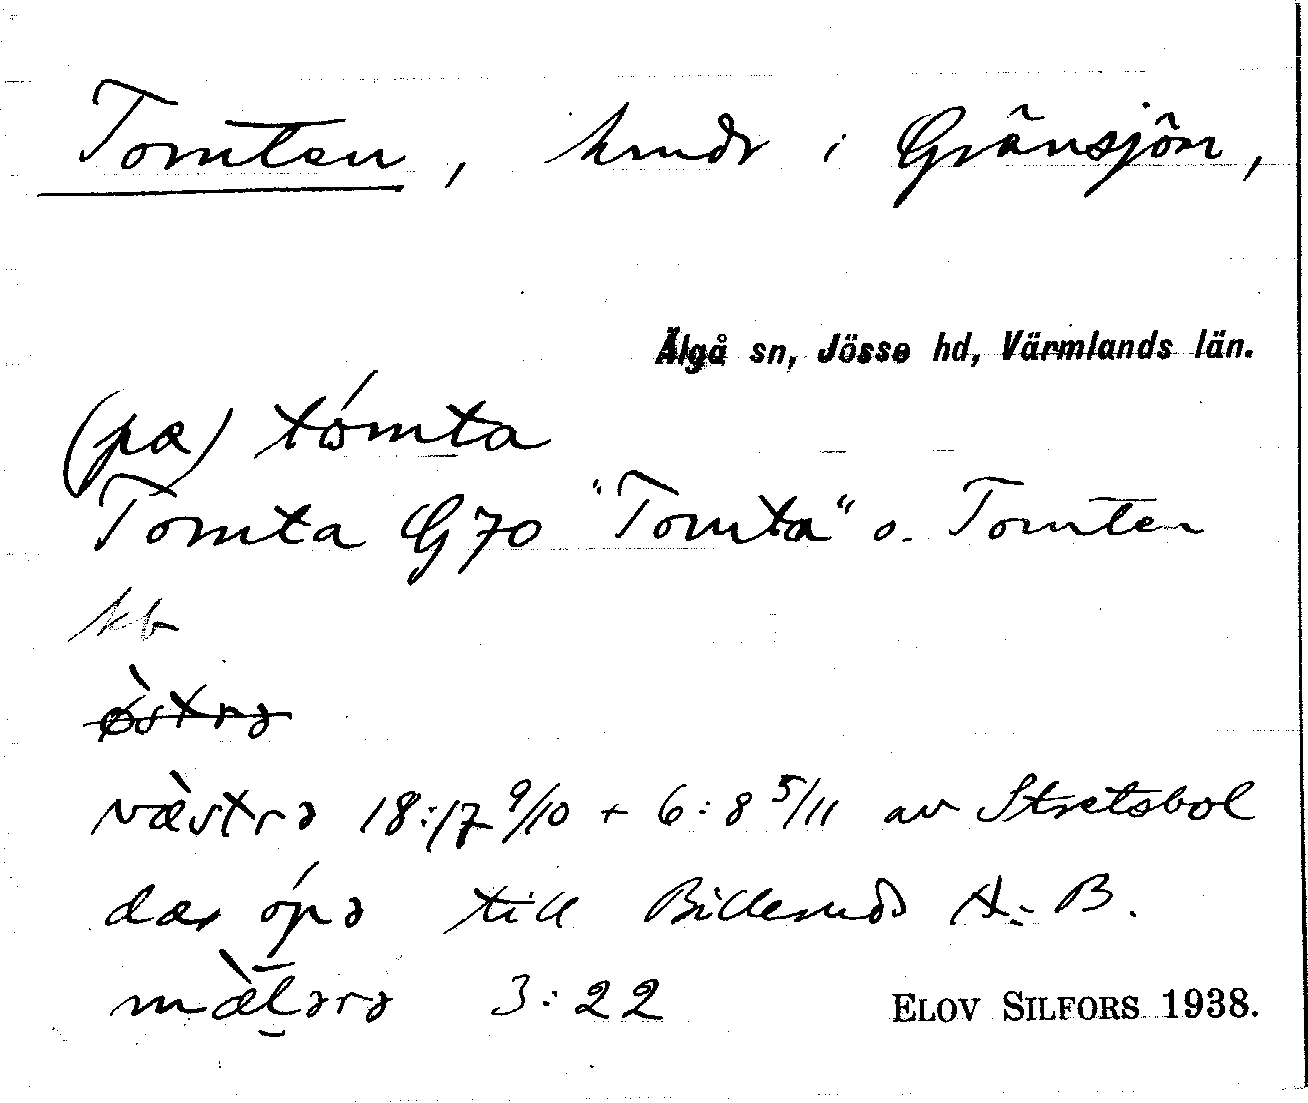 Tomten, hmdr i Gränsjön,
Älgå sn, Jösse hd, Värmlands län.
(pa) tómta
Tomta G 70 "Tomta" o. Tomten
kb
ö̀strə
væ̀strə 18:17 9/10 + 6:8 5/11 av Stretsbol
dær ópə till Billeruds A.-B.
mæ̀lərə 3:22
ELOV SILFORS 1938.